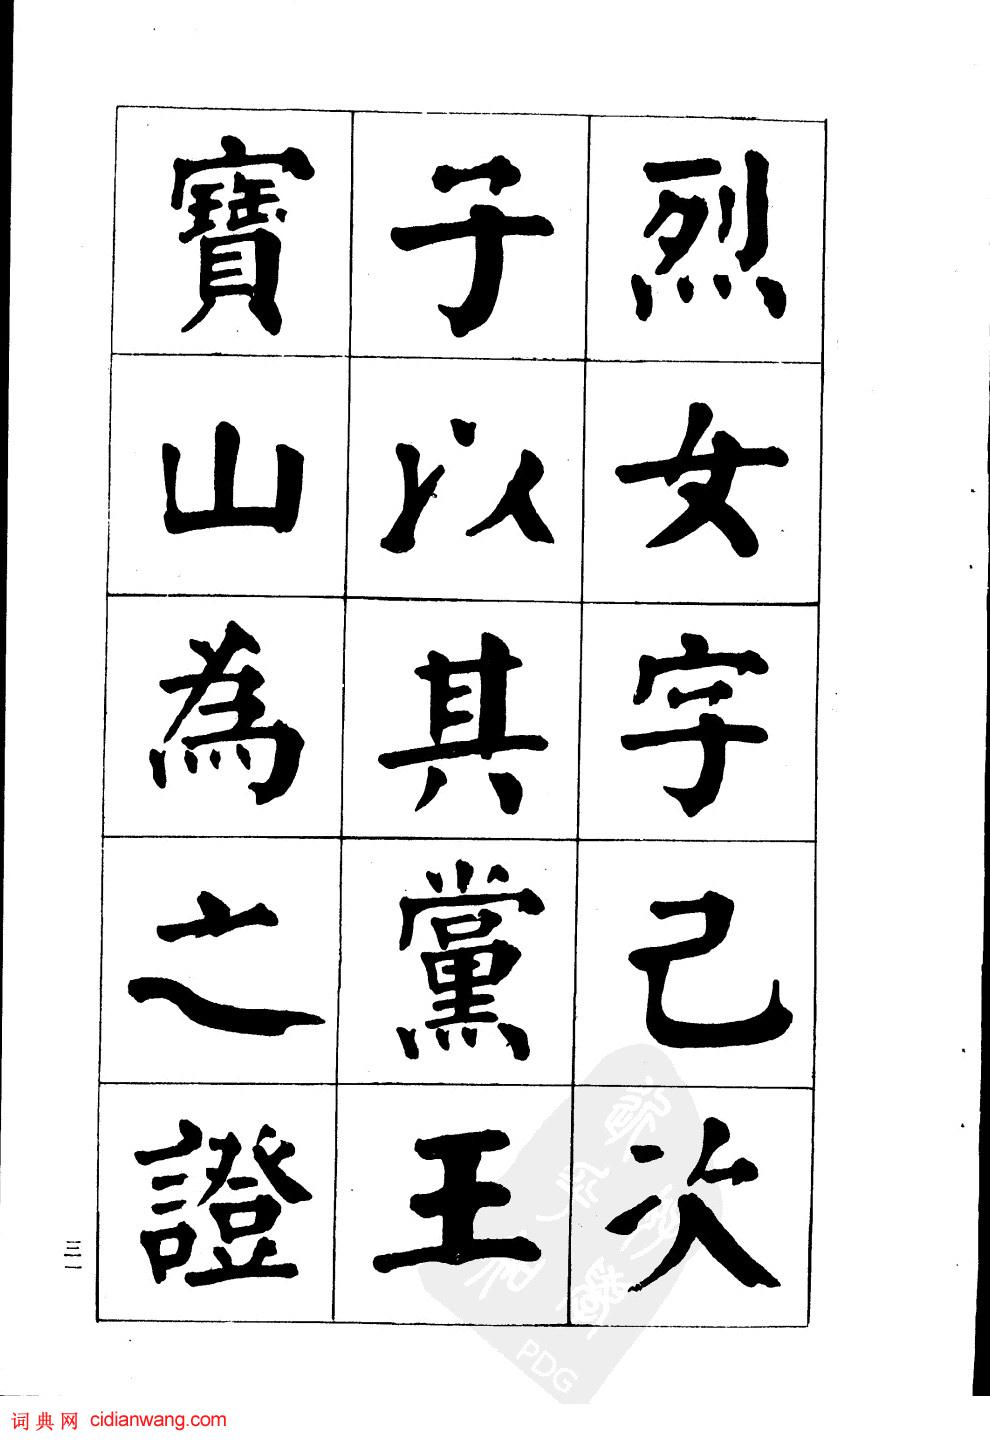 烈女字己次
子以其黨王
寶山為之證
三一
PDG
词典网 cidianwang.com